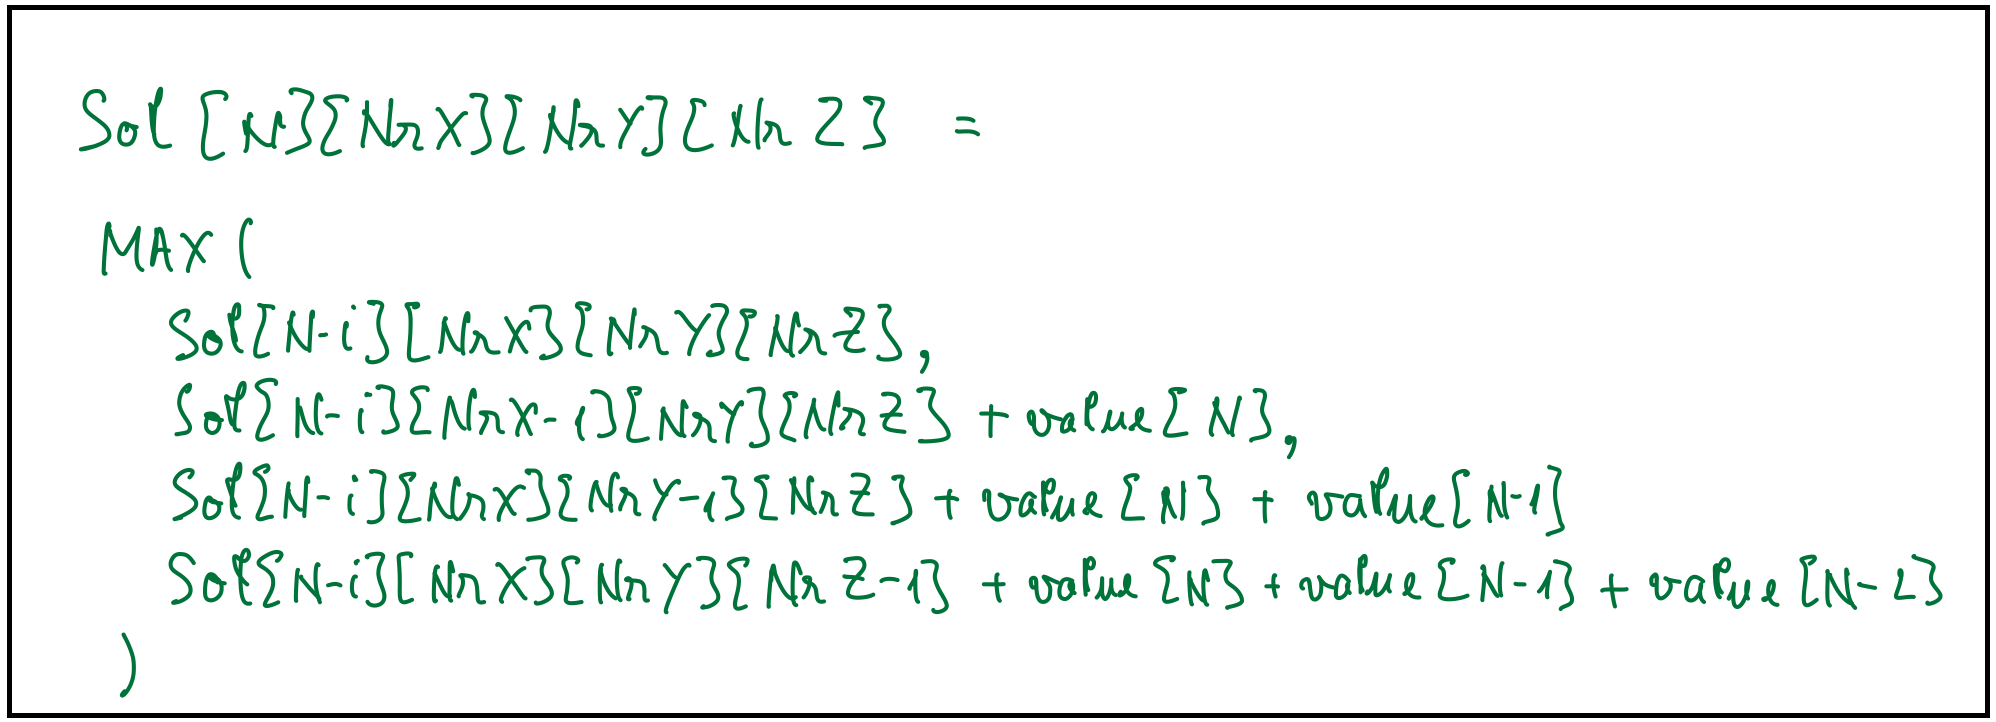 Sol[N][NrX][NrY][NrZ] =
MAX(
Sol[N-i][NrX][NrY][NrZ],
Sol[N-i][NrX-1][NrY][NrZ] + value[N],
Sol[N-i][NrX][NrY-1][NrZ] + value[N] + value[N-1]
Sol[N-i][NrX][NrY][NrZ-1] + value[N] + value[N-1] + value[N-2]
)